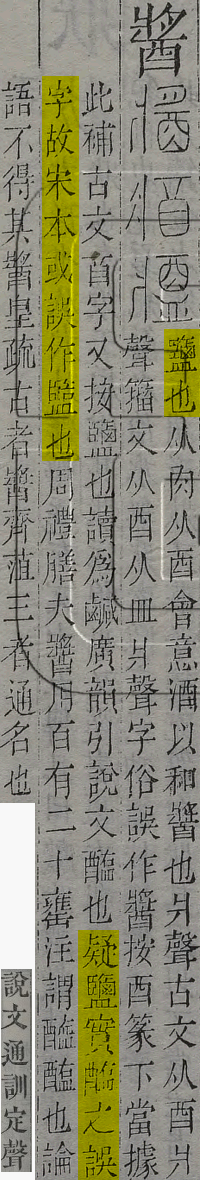 醬
鹽也从肉从酉會意酒以和醬也爿聲古文从酉爿
聲籀文从酉从皿爿聲字俗誤作醬按酉篆下當據
此補古文酉字又按鹽也讀爲鹹廣韻引說文醢也疑鹽實醢之誤
字故宋本或誤作鹽也周禮膳夫醬用百有二十罋注謂醯醢也論
語不得其醬皇疏古者醬齊葅三者通名也
說文通訓定聲